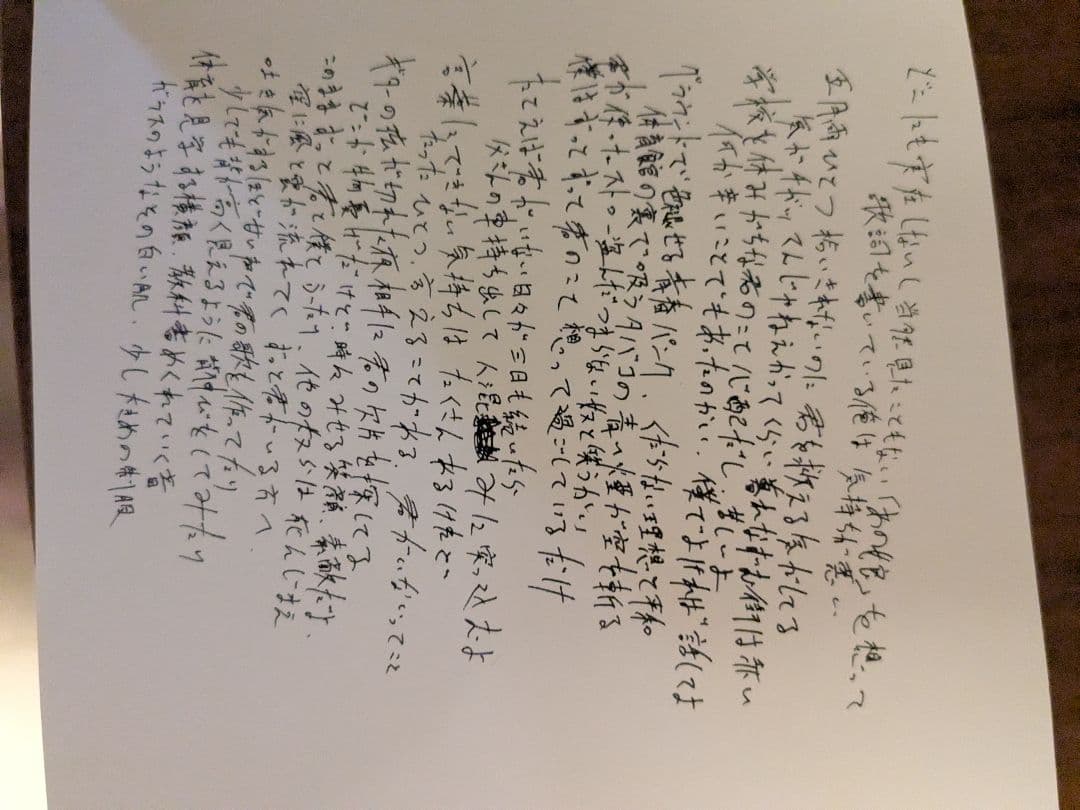 どこにも存在しないし当然見たこともない「あの娘」を想って
歌詞を書いている俺は気持ちが悪い
五月雨ひとつ拾いきれないのに君を救える気がしてる
気がちがってんじゃねえかってくらい暮れなずむ街は赤い
学校を休みがちな君のこと心配だし寂しいよ
何か辛いことでもあったのかい、僕でよければ話してよ
グラウンドで色褪せる青春パンク、くだらない理想と平和
体育館の裏で吸うタバコの青い煙が空を斬る
君が使ったストロー盗んだつまらない奴と笑うかい
僕はずっとずって君のこと想って過ごしているだけ
たとえば君がいない日々が三日も続いたら
父さんの車持ち出して人混みに突っ込むよ
言葉にできない気持ちはたくさんあるけど
たったひとつ、言えることがある、君がいないってこと
ギターの弦が切れた夜、相手に君の欠片を探してる
どこか物憂げだけど、時々みせる笑顔、素敵だよ、
このままずっと君と僕とふたり、他の奴らは死んじまえ
空に風と雲が流れて ずっと君がいる方へ
吐き気がするほど甘い声で君の歌を作ってたり
少しでも背が高く見えるように背伸びをしてみたり
体育を見学する横顔、教科書めくれていく音
ガラスのようなその白い肌、少し大きめの制服